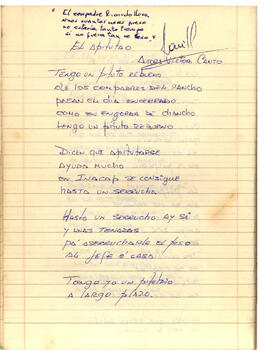 "El compadre Ricardo
no estaría tanto tiempo
si no fuera tan
EL APITUTAO
AUTOR VICTOR CANTO
TENGO UN PITUTO REBUENO
DE LOS COMPADRES DEL RANCHO
PASAN EL DIA ENCERRADO
COMO EN ENGORDA DE CHANCHO
TENGO UN PITUTO REBUENO
DICEN QUE APITUTARSE
AYUDA MUCHO
EN INACAP SE CONSIGUE
HASTA UN SERRUCHO
HASTA UN SERRUCHO AY SÍ
Y UNAS TENAZAS
PA' ASERRUCHARLE EL PISO
AL JEFE E' CASA
TENGO YO UN PITUTITO
A LARGO PLAZO.